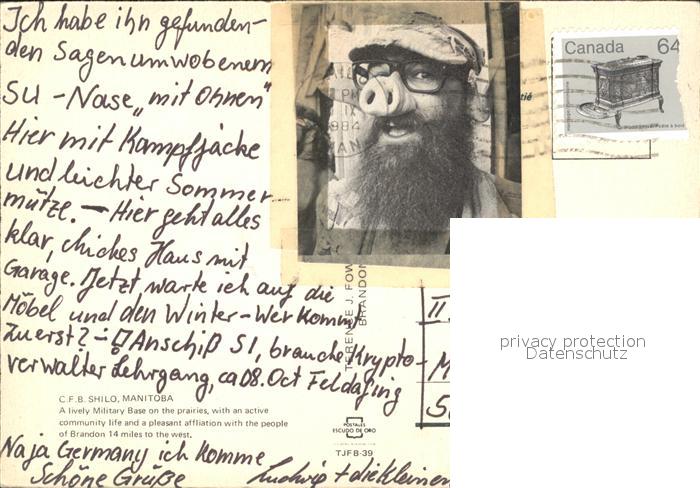 Ich habe ihn gefunden-
den Sagenumwobenen
SU-Nase "mit Ohnen"
Hier mit Kampfjacke
und leichter Sommer-
mütze. — Hier geht alles
klar, chickes Haus mit
Garage. Jetzt warte ich auf die
Möbel und den Winter-Wer kommt
zuerst? Anschiß S1, brauche Krypto-
verwalter Lehrgang, ca 08. Oct Feldafing
C.F.B. SHILO, MANITOBA
A lively Military Base on the prairies, with an active
community life and a pleasant affliation with the people
of Brandon 14 miles to the west.
Naja Germany ich komme
Schöne Grüße
Ludwig + die Kleinen
PM
IX
1984
MAN
tié
Canada 64
TERENCE J. FOW
BRANDON
II
M
S
POSTALES
ESCUDO DE ORO
TJFB-39
privacy protection
Datenschutz